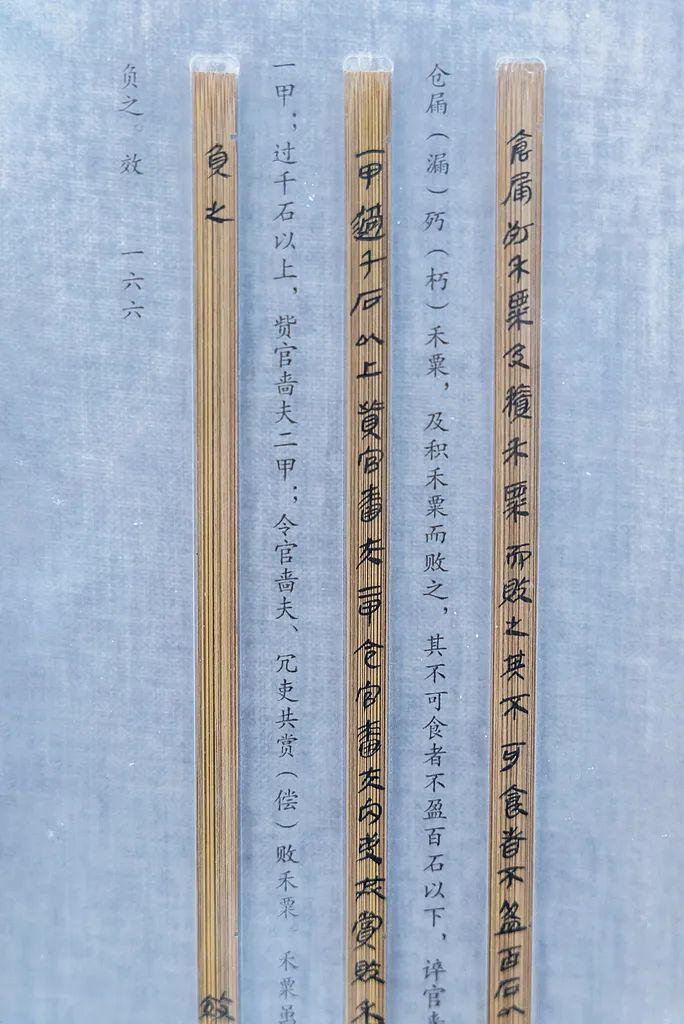 倉屚㱙禾粟及積禾粟而敗之其不可食者不盈百石以
仓屚（漏）㱙（朽）禾粟，及积禾粟而败之，其不可食者不盈百石以下，谇官啬
一甲過千石以上貲官嗇夫二甲令官嗇夫冗吏共賞敗禾
一甲；过千石以上，赀官啬夫二甲；令官啬夫、冗吏共赏（偿）败禾粟。禾粟虽
負之 效
负之。效 一六六